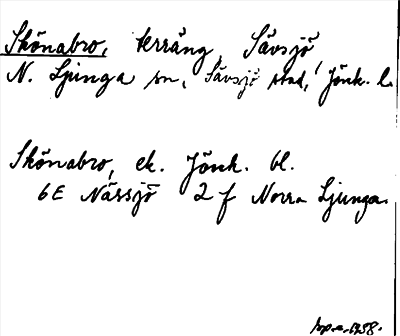 Skönabro, terräng, Sävsjö
N. Ljunga sn, Sävsjö stad, Jönk. l.
Skönabro, ek. Jönk. bl.
6E Nässjö 2 f Norra Ljunga.